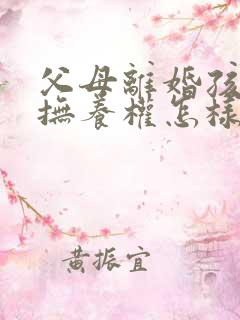 父母離婚孩
撫養權怎樣
黃振宜